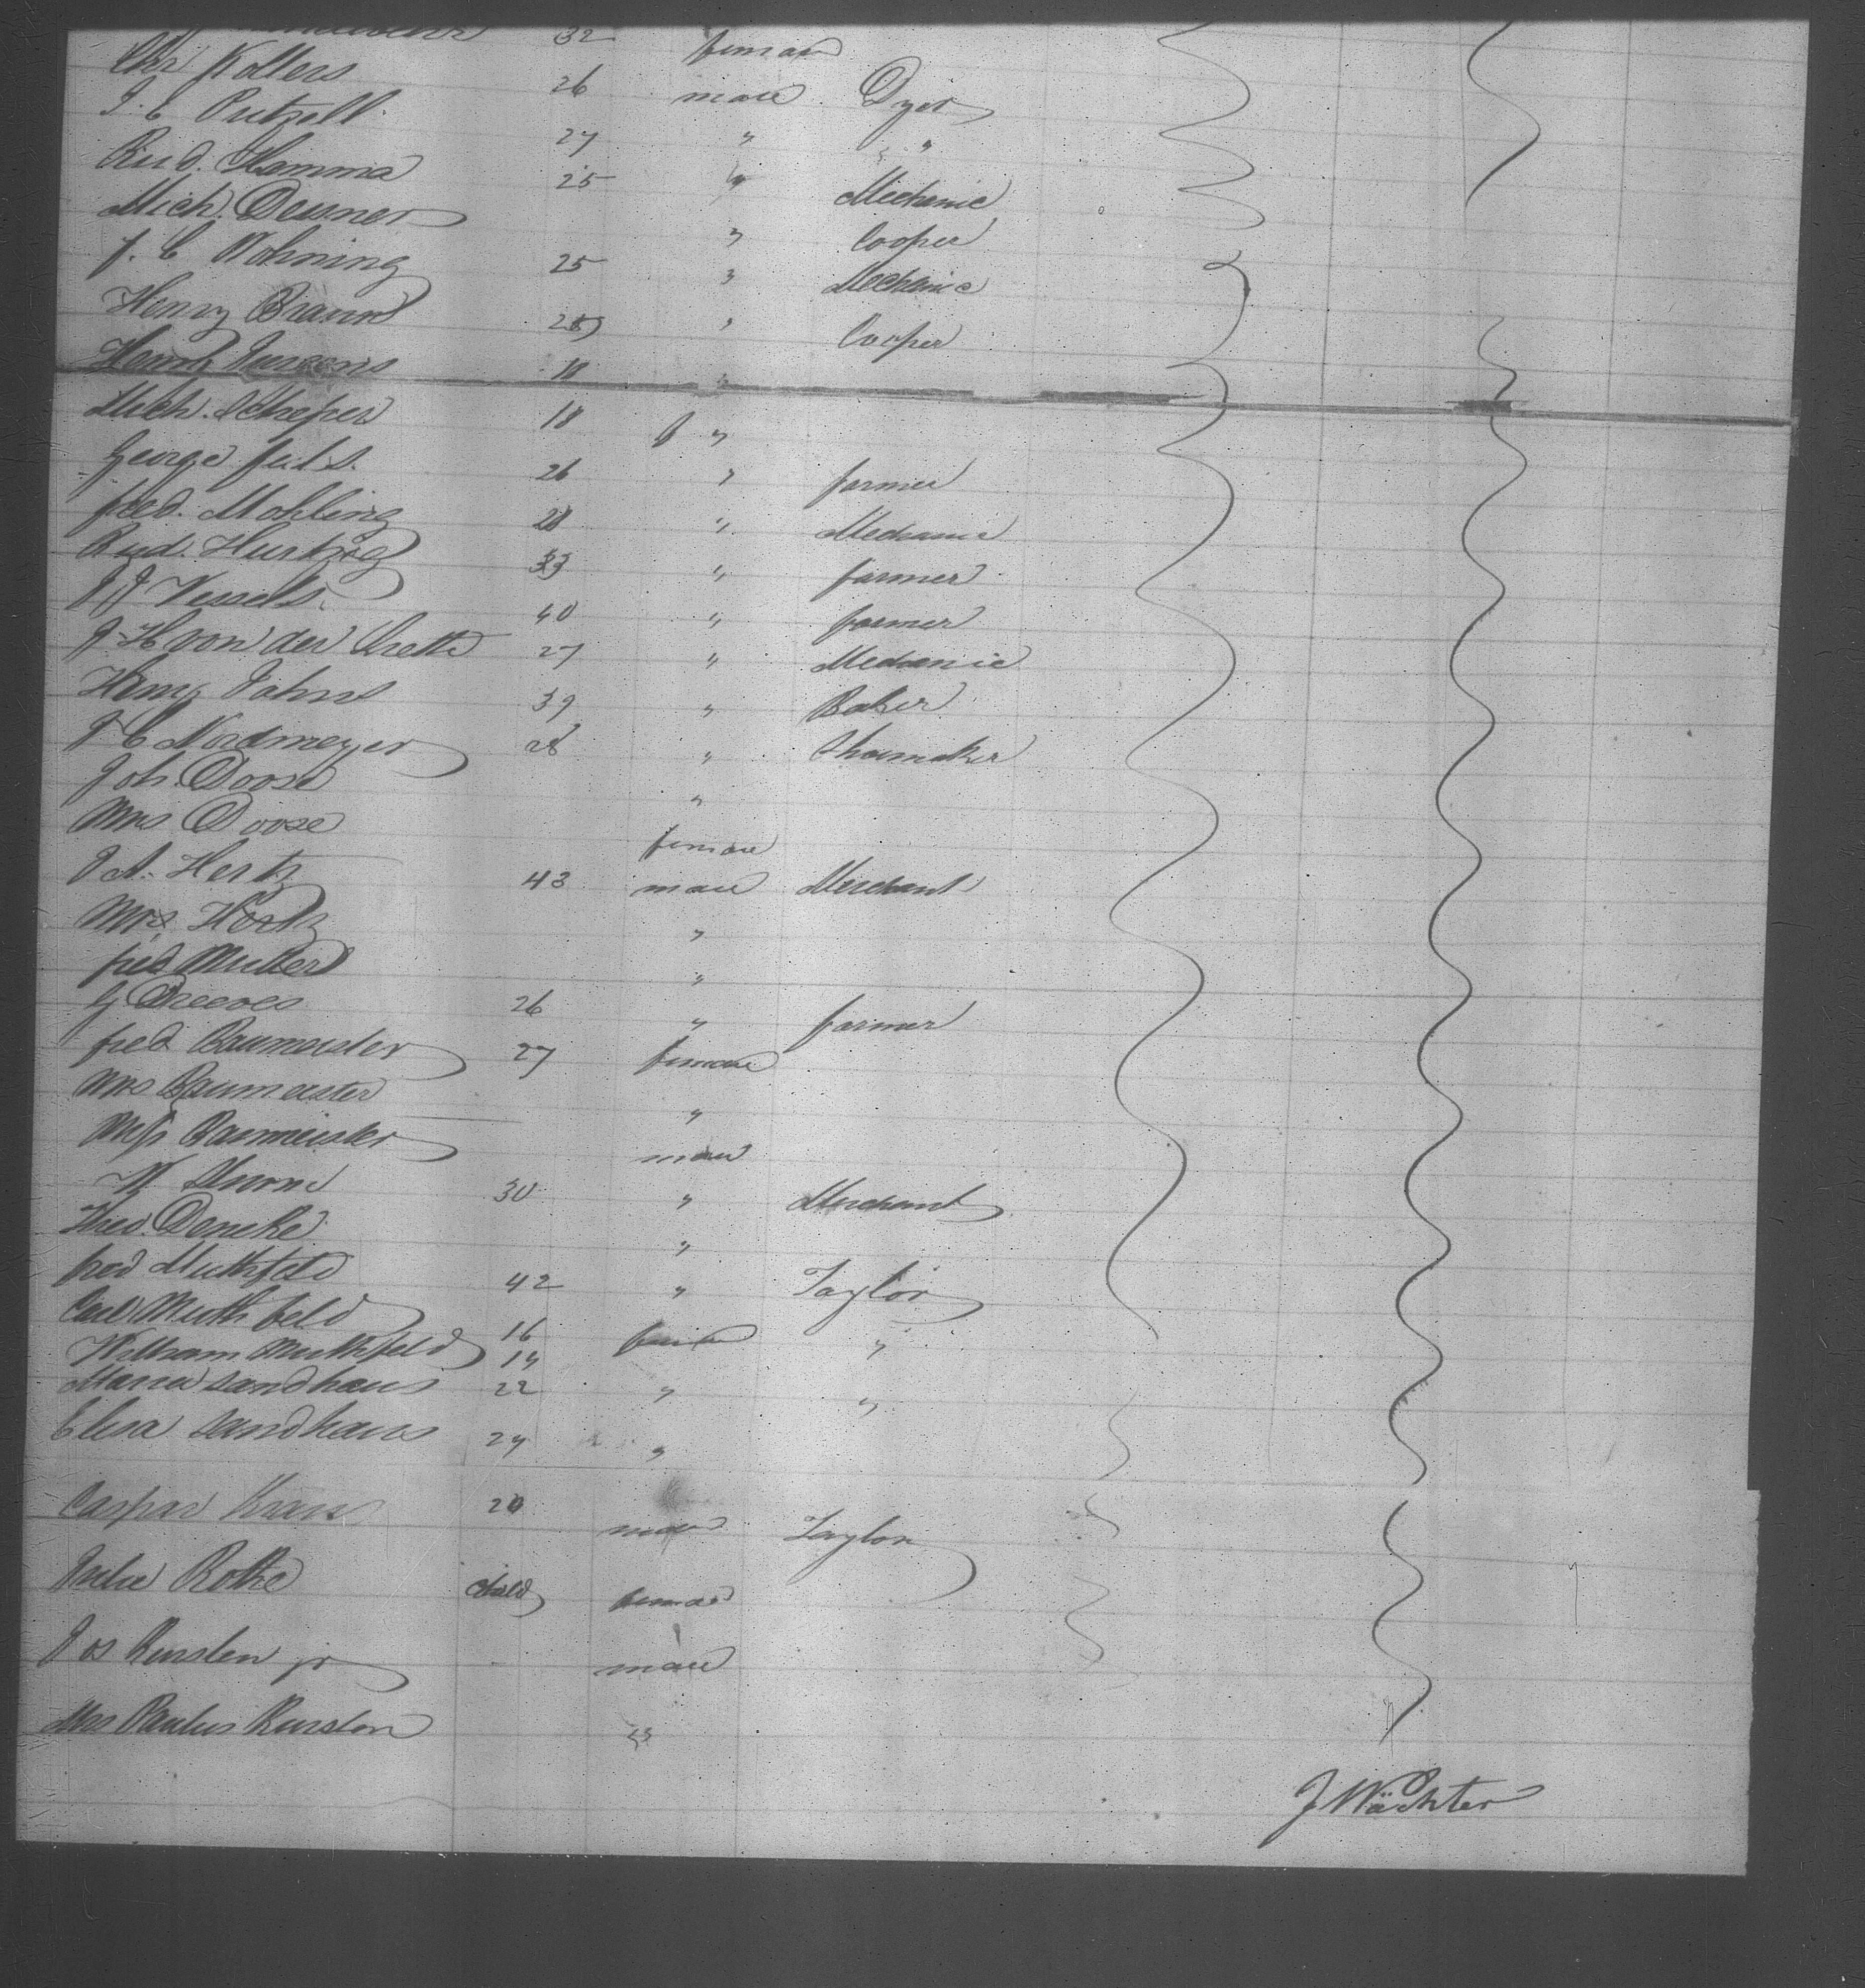 32 female
Chr Kollers 26 male Dyer
J. C Putzell 27 " "
Rud. Hamma 25 " Mechanic
Mich. Dessner " Cooper
F. C Wohning 25 " Mechanic
Henry Braun 25 " Cooper
Henry 18 "
Mich. Scheper 18 "
George 26 " farmer
fred. Mohling 28 " Mechanic
Rud. Hurtzig 33 " farmer
Wessels 40 " farmer
J H von der 27 " Mechanic
Henry Jahns 39 " Baker
J C Nordmeyer 28 " Shoemaker
Joh. Doose "
Mrs Doose female
J A. Hertz 43 male Merchant
Mrs. Hertz "
fred Muller "
G Dreeves 26 " farmer
fred Baumeister 27 female
Mrs Baumeister "
Miss Baumeister male
W 30 " Merchant
Theo. Dencke "
fred Muthfeld 42 " Taylor
Carl Muthfeld 16 female "
William Muthfeld 14
Maria Sandhaus 22 " "
Elisa Sandhaus 24 "
Caspar Kraus 20 male Taylor
Julie Rothe child female
Jos Kersten jr male
Mrs Paulus Kersten "
J Wächter